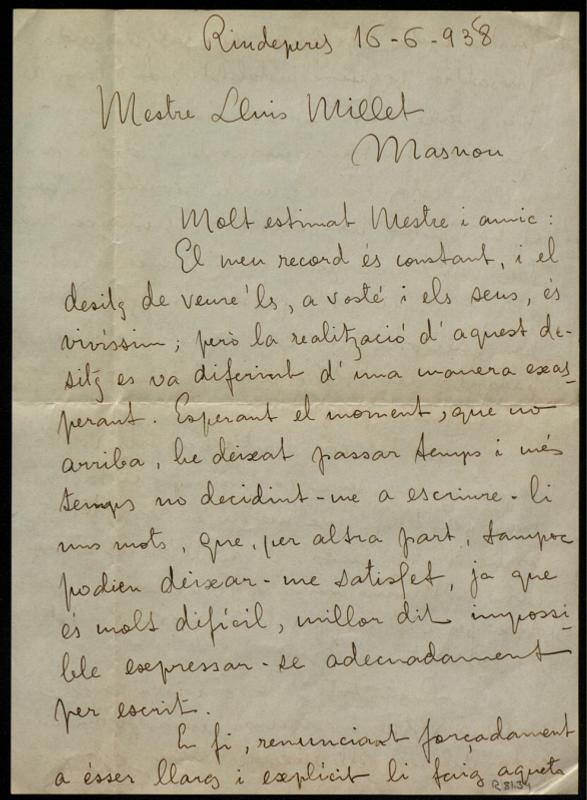 Rindeperes 16-6-938
Mestre Lluis Millet
Masnou
Molt estimat Mestre i amic:
El meu record és constant, i el
desitg de veure'ls, a vosté i els seus, és
vivíssim; però la realització d'aquest de-
sitg es va diferint d'una manera exas-
perant. Esperant el moment, que no
arriba, he deixat passar temps i més
temps no decidint-me a escriure-li
uns mots, que, per altra part, tampoc
podien deixar-me satisfet, ja que
és molt difícil, millor dit impossi-
ble expressar-se adecuadament
per escrit.
En fi, renunciant forçadament
a ésser llarg i explícit li faig aquets
R.8134